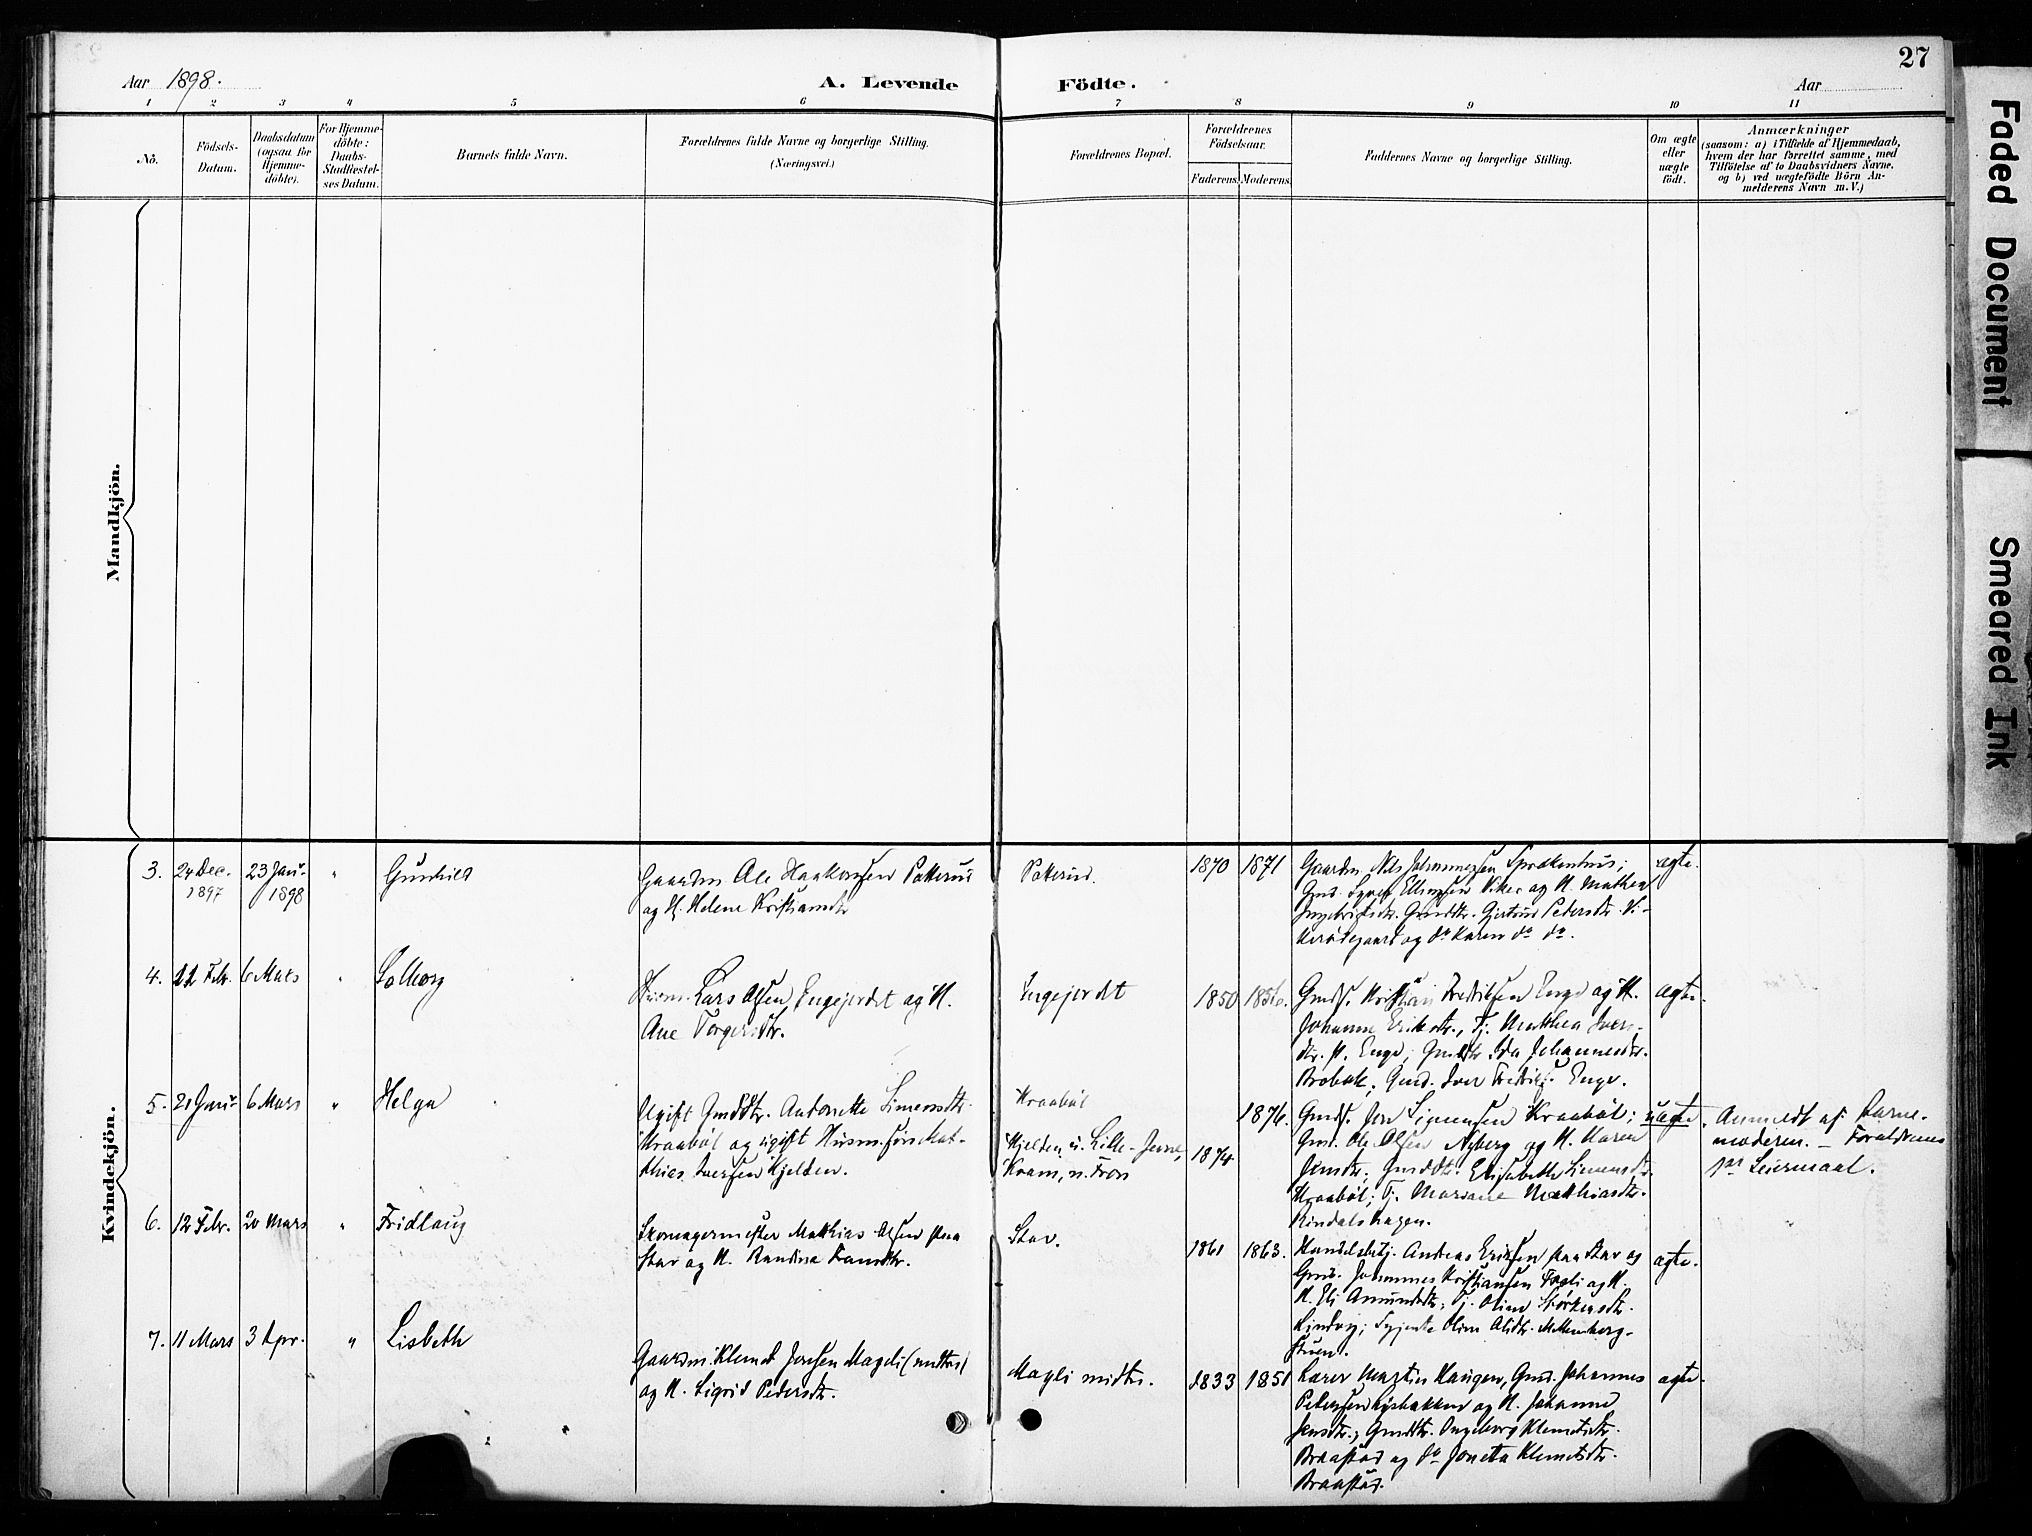 27
Aar 1898.
A. Levende Födte.
Aar
1 2 3 4 5 6 7 8 9 10 11
No.
Födsels-Datum.
Daabsdatum (ogsaa for Hjemme-döbte).
For Hjemme-döbte: Daabs-Stadfæstel-ses Datum.
Barnets fulde Navn.
Forældrenes fulde Navne og borgerlige Stilling.
(Næringsvei.)
Forældrenes Bopæl.
Forældrenes Födselsaar.
Faderens. Moderens.
Faddernes Navne og borgerlige Stilling.
Om ægte eller uægte födt.
Anmærkninger
(saasom: a) i Tilfælde af Hjemmedaab,
hvem der har forrettet samme, med
Tilföielse af to Daabsvidners Navne.
og b) ved uægtefödte Börn An-
melderens Navn m.V.)
Mandkjön.
Kvindekjön.
3. 24 Dec. 1897 23 Janr. 1898 " Gunhild
Gaardm. Ole Haakensen Pollerud
og H. Helene Kristiansdtr.
1870 1871
Gaardm. Nils Johannessen Sprækenhus;
og H. Mathea
Gmddtr. Gjertrud Pedersdtr. Vi-
kerödegaard og do Karen do do.
ægte.
4. 22 Febr. 6 Mars " Solborg
Husm. Lars Olsen Engejordet og H.
Ane Torgersdtr.
Engejordt
1850 1856.
Gmds. Kristian Fredriksen Enge og H.
Johanne Eriksdtr., Tj. Mathea Ivers-
dtr. p. Enge, Gmddtr. Ida Johannesdtr.
Brobak, Gmd. Iver Fredriks. Enge.
ægte.
5. 21 Janr. 6 Mars " Helga
Ugift Gmddtr. Antonette Simensdtr.
Kraaböl og ugift Husm.sön Mat-
thias Iversen Kjelden.
Kraaböl
Kjelden u. Lille-Jevne,
Kvam, n. Fron
1874 1876.
Gmds. Jon Simensen Kraaböl;
Gmd. Ole Olsen Nyberg og H. Karen
Jensdtr.; Gmddtr. Elisabeth Simensdtr.
Kraaböl; Tj. Mariane Mathiasdtr.
Rindalshagen.
uægte.
Anmeldt af Barne-
moderen. — Forældrenes
1ste Leiermaal.
6. 12 Febr. 20 Mars " Fridlaug
Skomagermester Matthias Olsen paa
Stav og H. Randine Hansdtr.
Stav.
1861 1863.
Handelsbetj. Andreas Eriksen paa Stav og
Gmd. Johannes Kristiansen Fagli og H.
H. Eli Amundsdtr; Tj. Oline Størkersdtr.
Lindvig; Syjente Oline Olsdtr. Mellemberg-
stuen.
ægte.
7. 11 Mars 3 Apr. " Lisbeth
Gaardm. Klemet Jonsen Mageli (midtre)
og H. Sigrid Pedersdtr.
Magli midtre.
1833 1851
Lærer Martin Haugen, Gmd. Johannes
Petersen Lysbakken og H. Johanne
Jensdtr.; Gmddtr. Ingeborg Klemetsdtr.
Braastad og do Joneta Klemetsdtr.
Braastad.
ægte.
Faded Document
Smeared Ink